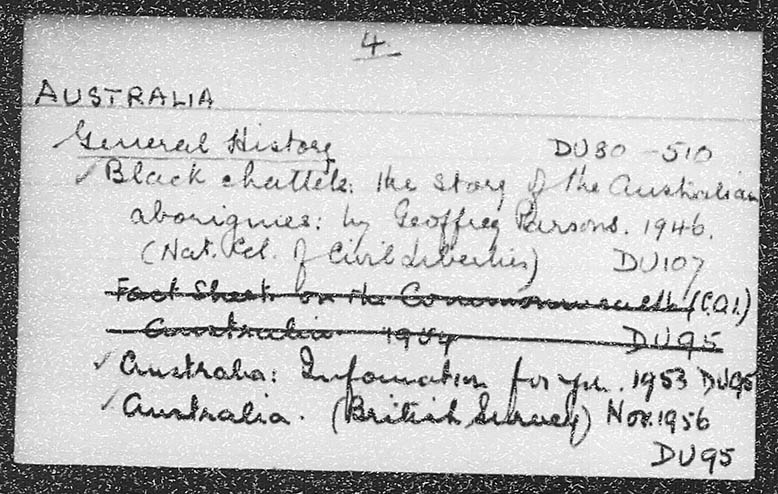 4.
AUSTRALIA
General History DU80-510
✓ Black chattels: the story of the Australian
aborigines: by Geoffrey Parsons. 1946.
(Nat. Ccl. of Civil Liberties) DU107
Fact Sheet on the Commonwealth (C.O.I.)
Australia 1954 DU95
✓ Australia: Information for you. 1953 DU95
✓ Australia. (British Survey) Nov. 1956
DU95